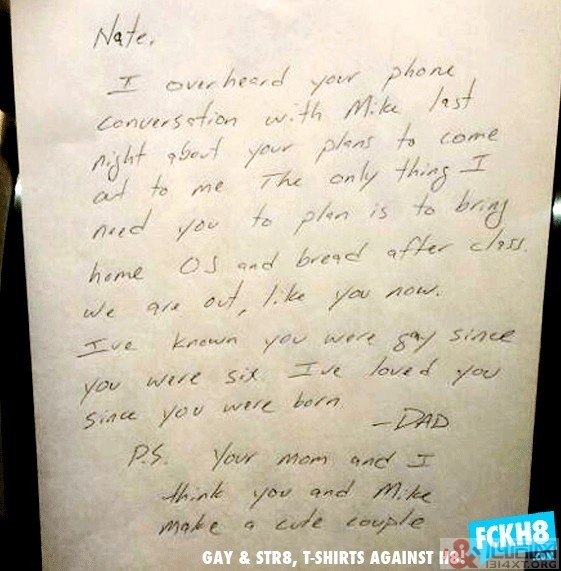 Nate,
I overheard your phone
conversation with Mike last
night about your plans to come
out to me The only thing I
need you to plan is to bring
home OJ and bread after class.
We are out, like you now.
I've known you were gay since
you were six I've loved you
since you were born
-DAD
P.S. Your mom and I
think you and Mike
make a cute couple
FCKH8
.COM
GAY & STR8, T-SHIRTS AGAINST H8!
1314XT.ORG